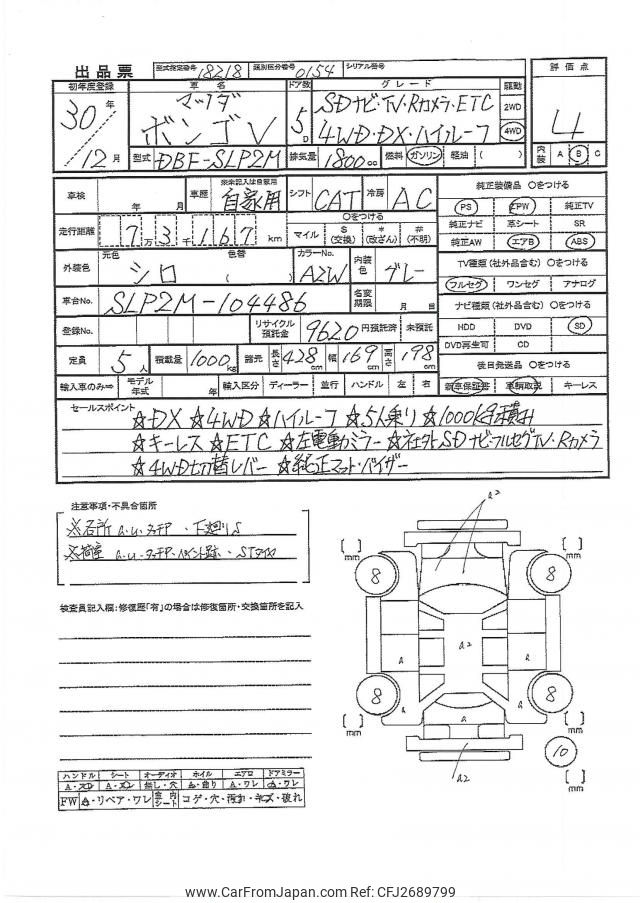 出品票 型式指定番号 18218 類別区分番号 0154 シリアル番号
初年度登録 車名 ドア数 グレード 駆動 評価点
30年 マツダ SDナビ・TV・Rカメラ・ETC 2WD
ボンゴV 5D 4WD・DX・ハイルーフ 4WD 4
12月 型式 DBF-SLP2M 排気量 1800cc 燃料 ガソリン 軽油 ( ) 内装 A B C
車検 年 月 車歴 ※未記入は自家用 自家用 シフト CAT 冷房 AC 純正装備品 ○をつける
PS PW 純正TV
走行距離 7万3千167km ○をつける マイル $(交換) *(改ざん) #(不明) 純正ナビ 革シート SR
純正AW エアB ABS
外装色 元色 シロ 色替 ( ) カラーNo. A2W 内装色 グレー TV種類(社外品含む) ○をつける
フルセグ ワンセグ アナログ
車台No. SLP2M-104486 名変期限 月 日 ナビ種類(社外品含む) ○をつける
登録No. リサイクル預託金 9620円預託済 未預託 HDD DVD SD
DVD再生可 CD
定員 5人 積載量 1000kg 諸元 長さ 428cm 幅 169cm 高さ 198cm 後日発送品 ○をつける
輸入車のみ⇨ モデル年式 年 輸入区分 ディーラー 並行 ハンドル 左 右 新車保証書 車輌取説 キーレス
セールスポイント
☆DX ☆4WD ☆ハイルーフ ☆5人乗り ☆1000kg積み
☆キーレス ☆ETC ☆左電動ミラー ☆社外SDナビ・フルセグTV・Rカメラ
☆4WD切替レバー ☆純正マット・バイザー
注意事項・不具合箇所
※各所 a.u.タッチP・下廻りS
※荷室 a.u.タッチP・ペイント跡・
検査員記入欄:修復歴「有」の場合は修復箇所・交換箇所を記入
a2
[ ] mm 8 8 [ ] mm
a a2 a
[ ] mm 8 8 [ ] mm
a a a
a2
10
[ ] mm
ハンドル シート オーディオ ホイル エアロ ドアミラー
A・スレ A・スレ 無し・穴 A・曲り A・ワレ A・ワレ
FW A・リペア・ワレ 室内シート コゲ・穴・汚れ・キズ・破れ
www.CarFromJapan.com Ref: CFJ2689799